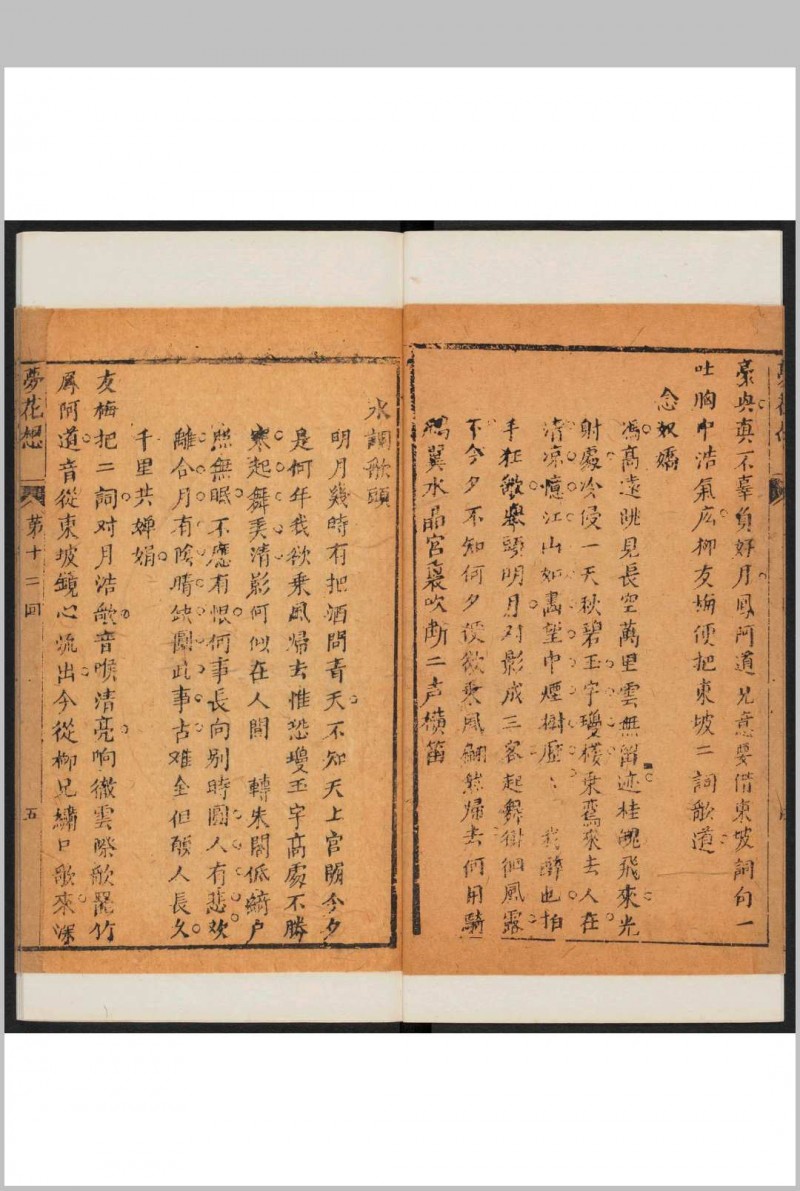 豪與真不辜負好月鳳阿道兄意要借東坡詞句一
吐胸中浩氣広柳友梅便把東坡二詞歌道
念奴嬌
馮高遠眺見長空萬里雲無留迹桂魄飛來光
射處冷侵一天秋碧玉宇瓊樓乘鸞來去人在
清凉憶江山如畵望中煙樹歷〻我醉也怕
手狂歌舉頭明月对影成三客起舞徘徊風露
下今夕不知何夕便欲乘風翩然帰去何用騎
鵬翼水晶宮裏吹断二声横笛
水調歌頭
明月幾時有把酒問青天不知天上宫闕今夕
是何年我欲乘風帰去惟恐瓊玉宇高處不勝
寒起舞弄清影何似在人間 轉朱閣低綺户
照無眠不應有恨何事長向别時圓人有悲欢
離合月有陰晴缺圓此事古难全但願人長久
千里共嬋娟
友梅把二詞对月浩歌音喉清亮响徹雲際歌罷竹
鳳阿道音從東坡鏡心流出今從柳兄繡口歌來深
夢花想 第十二回 五